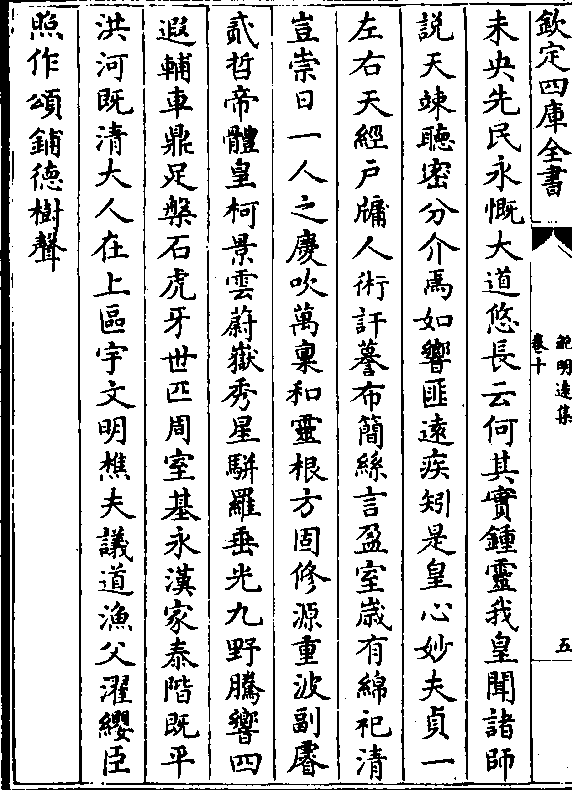 欽定四庫全書
鮑明逺集
卷十
五
未央先民永慨大道悠長云何其實鍾靈我皇聞諸師
説天竦聽密分介焉如響匪逺疾矧是皇心妙夫貞一
左右天經户牖人術訏謩布簡絲言盈室嵗有綿祀清
豈崇日一人之慶吹萬稟和靈根方固修源重波副膺
貳哲帝體皇柯景雲蔚嶽秀星駢羅垂光九野騰響四
遐輔車鼎足槃石虎牙世匹周室基永漢家泰階既平
洪河既清大人在上區宇文明樵夫議道漁父濯纓臣
照作頌鋪徳樹聲